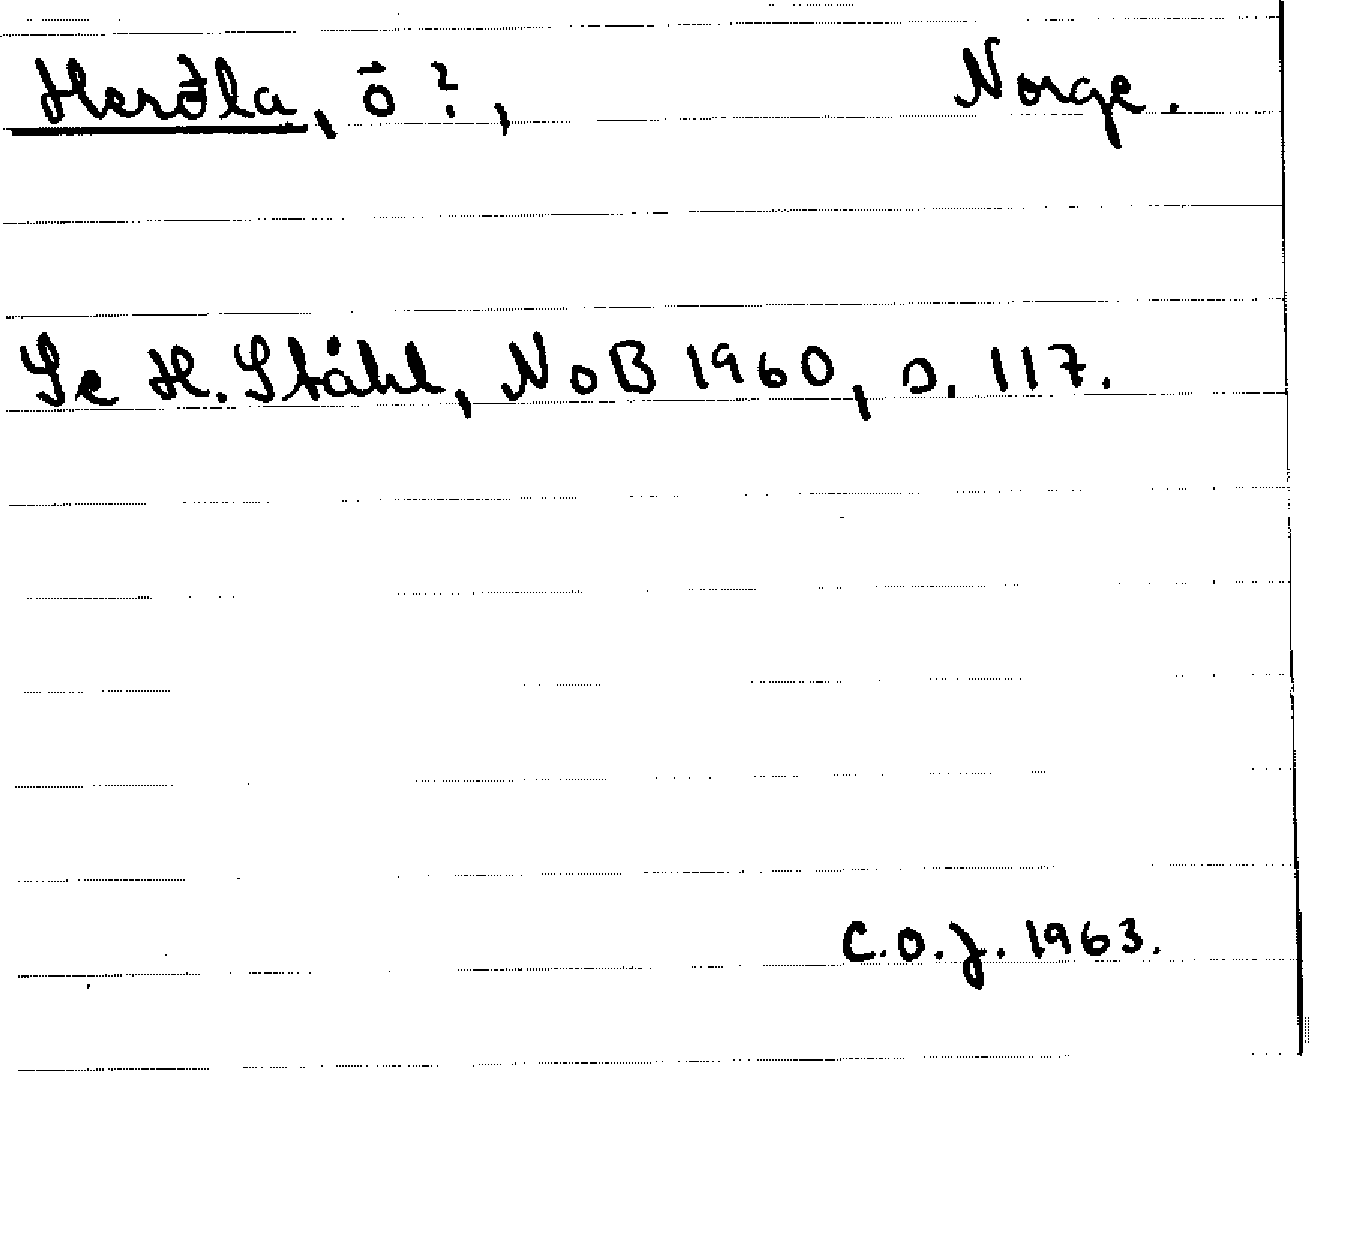 Herðla, ö ?, Norge.
Se H. Ståhl, NoB 1960, s. 117.
C.O.J. 1963.